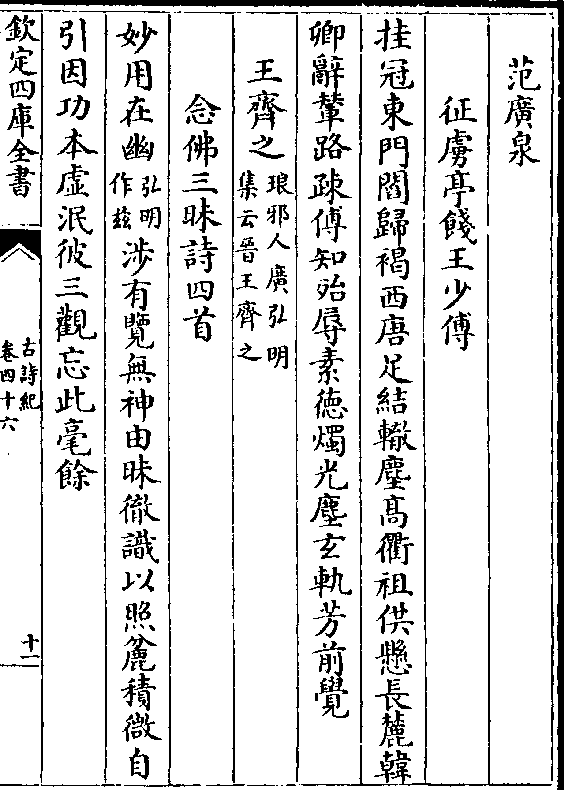 范廣泉
征虜亭餞王少傅
挂冠東門閭歸褐西唐足結轍塵髙衢祖供懸長麓韓
卿辭輦路疎傅知殆辱素徳燭光塵玄軌芳前覺
王齊之琅邪人廣弘明集云晉王齊之
念佛三昧詩四首
妙用在幽弘明作兹涉有覽無神由昧徹識以照麄積微自
引因功本虚泯彼三觀忘此毫餘
欽定四庫全書
古詩紀
卷四十六
十一